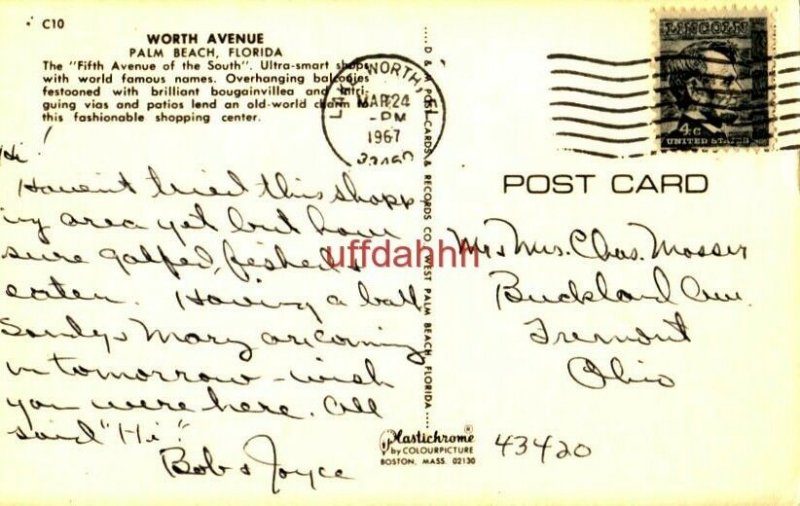 C10
WORTH AVENUE
PALM BEACH, FLORIDA
The "Fifth Avenue of the South". Ultra-smart shops
with world famous names. Overhanging balconies
festooned with brilliant bougainvillea and intri-
guing vias and patios lend an old-world charm to
this fashionable shopping center.
LAKE WORTH, FL
MAR 24
-PM
1967
33460
LINCOLN
4c
UNITED STATES
D & M POST CARDS & RECORDS CO., WEST PALM BEACH, FLORIDA
POST CARD
Hi!
Haven't tried this shopp-
ing area yet but have
sure golfed, fished &
eaten. Having a ball
Sandy & Mary are coming
in tomorrow - wish
you were here. All
said "Hi."
Bob & Joyce
uffdahhh
Mr & Mrs. Chas. Mosser
Buckland Ave.
Fremont
Ohio
43420
Plastichrome ®
by COLOURPICTURE
BOSTON, MASS. 02130